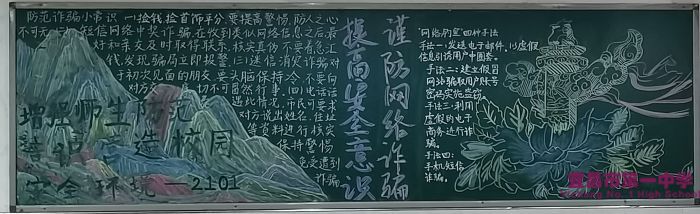 防范诈骗小常识 一、捡钱、捡首饰平分,要提高警惕,防人之心
不可无 二、短信网络中奖诈骗,在收到类似网络信息之后最
好和亲友及时取得联系,核实真伪,不要着急汇
钱,发现骗局立即报警 三、迷信消灾诈骗 对
于初次见面的朋友,要头脑保持冷,不要向
对方 切不可冒然行事. 四、电话
遇此情况,市民可要求
对方说出姓名、住址
等资料进行核实
保持警惕
免受遭到
诈骗
增强师生防范
意识 造校园
安全环境—2101
提高安全意识
谨防网络诈骗
"网络钓鱼"四种手法
手法一:发送电子邮件,以虚假
信息引诱用户中圈套。
手法二:建立假冒
网站骗取用户账号
密码实施盗窃
手法三:利用
虚假的电子
商务进行诈
骗。
手法四:
手机短信
诈骗。
宜昌市第一中学
Yichang No.1 High School